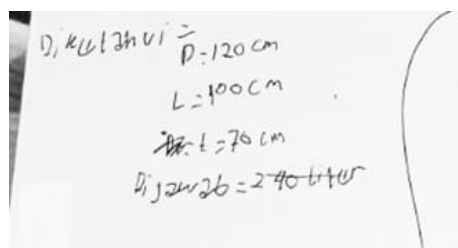 Diketahui =
P : 120 cm
L = 100 cm
t = 70 cm
Dijawab = 240 liter